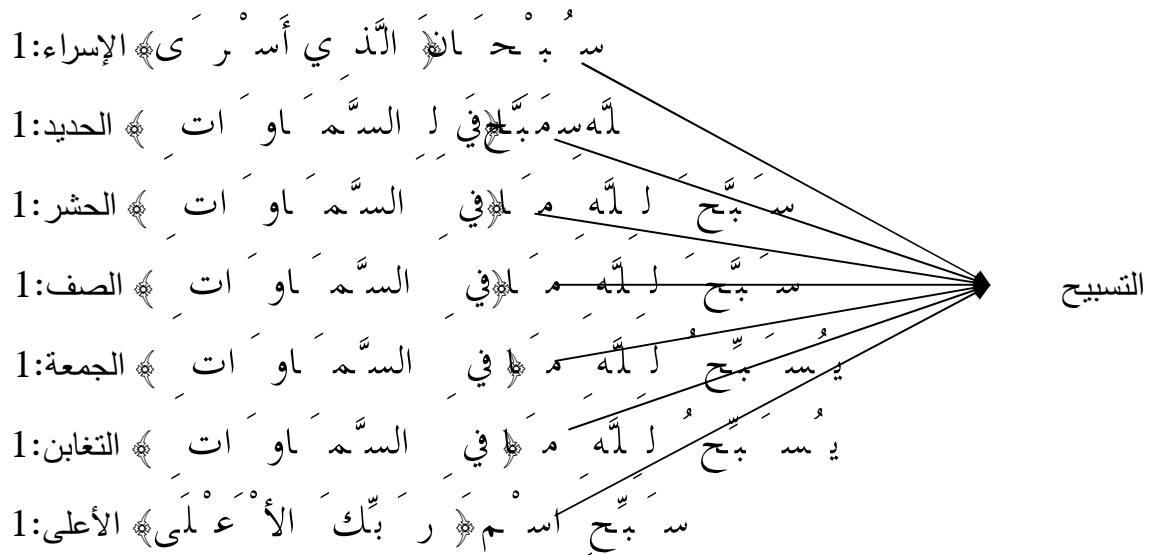 ﴿سُبْحَانَ الَّذِي أَسْرَى﴾ الإسراء:1
﴿سَبَّحَ لِلَّهِ مَا فِي السَّمَاوَاتِ﴾ الحديد:1
﴿سَبَّحَ لِلَّهِ مَا فِي السَّمَاوَاتِ﴾ الحشر:1
﴿سَبَّحَ لِلَّهِ مَا فِي السَّمَاوَاتِ﴾ الصف:1
التسبيح
﴿يُسَبِّحُ لِلَّهِ مَا فِي السَّمَاوَاتِ﴾ الجمعة:1
﴿يُسَبِّحُ لِلَّهِ مَا فِي السَّمَاوَاتِ﴾ التغابن:1
﴿سَبِّحِ اسْمَ رَبِّكَ الأَعْلَى﴾ الأعلى:1